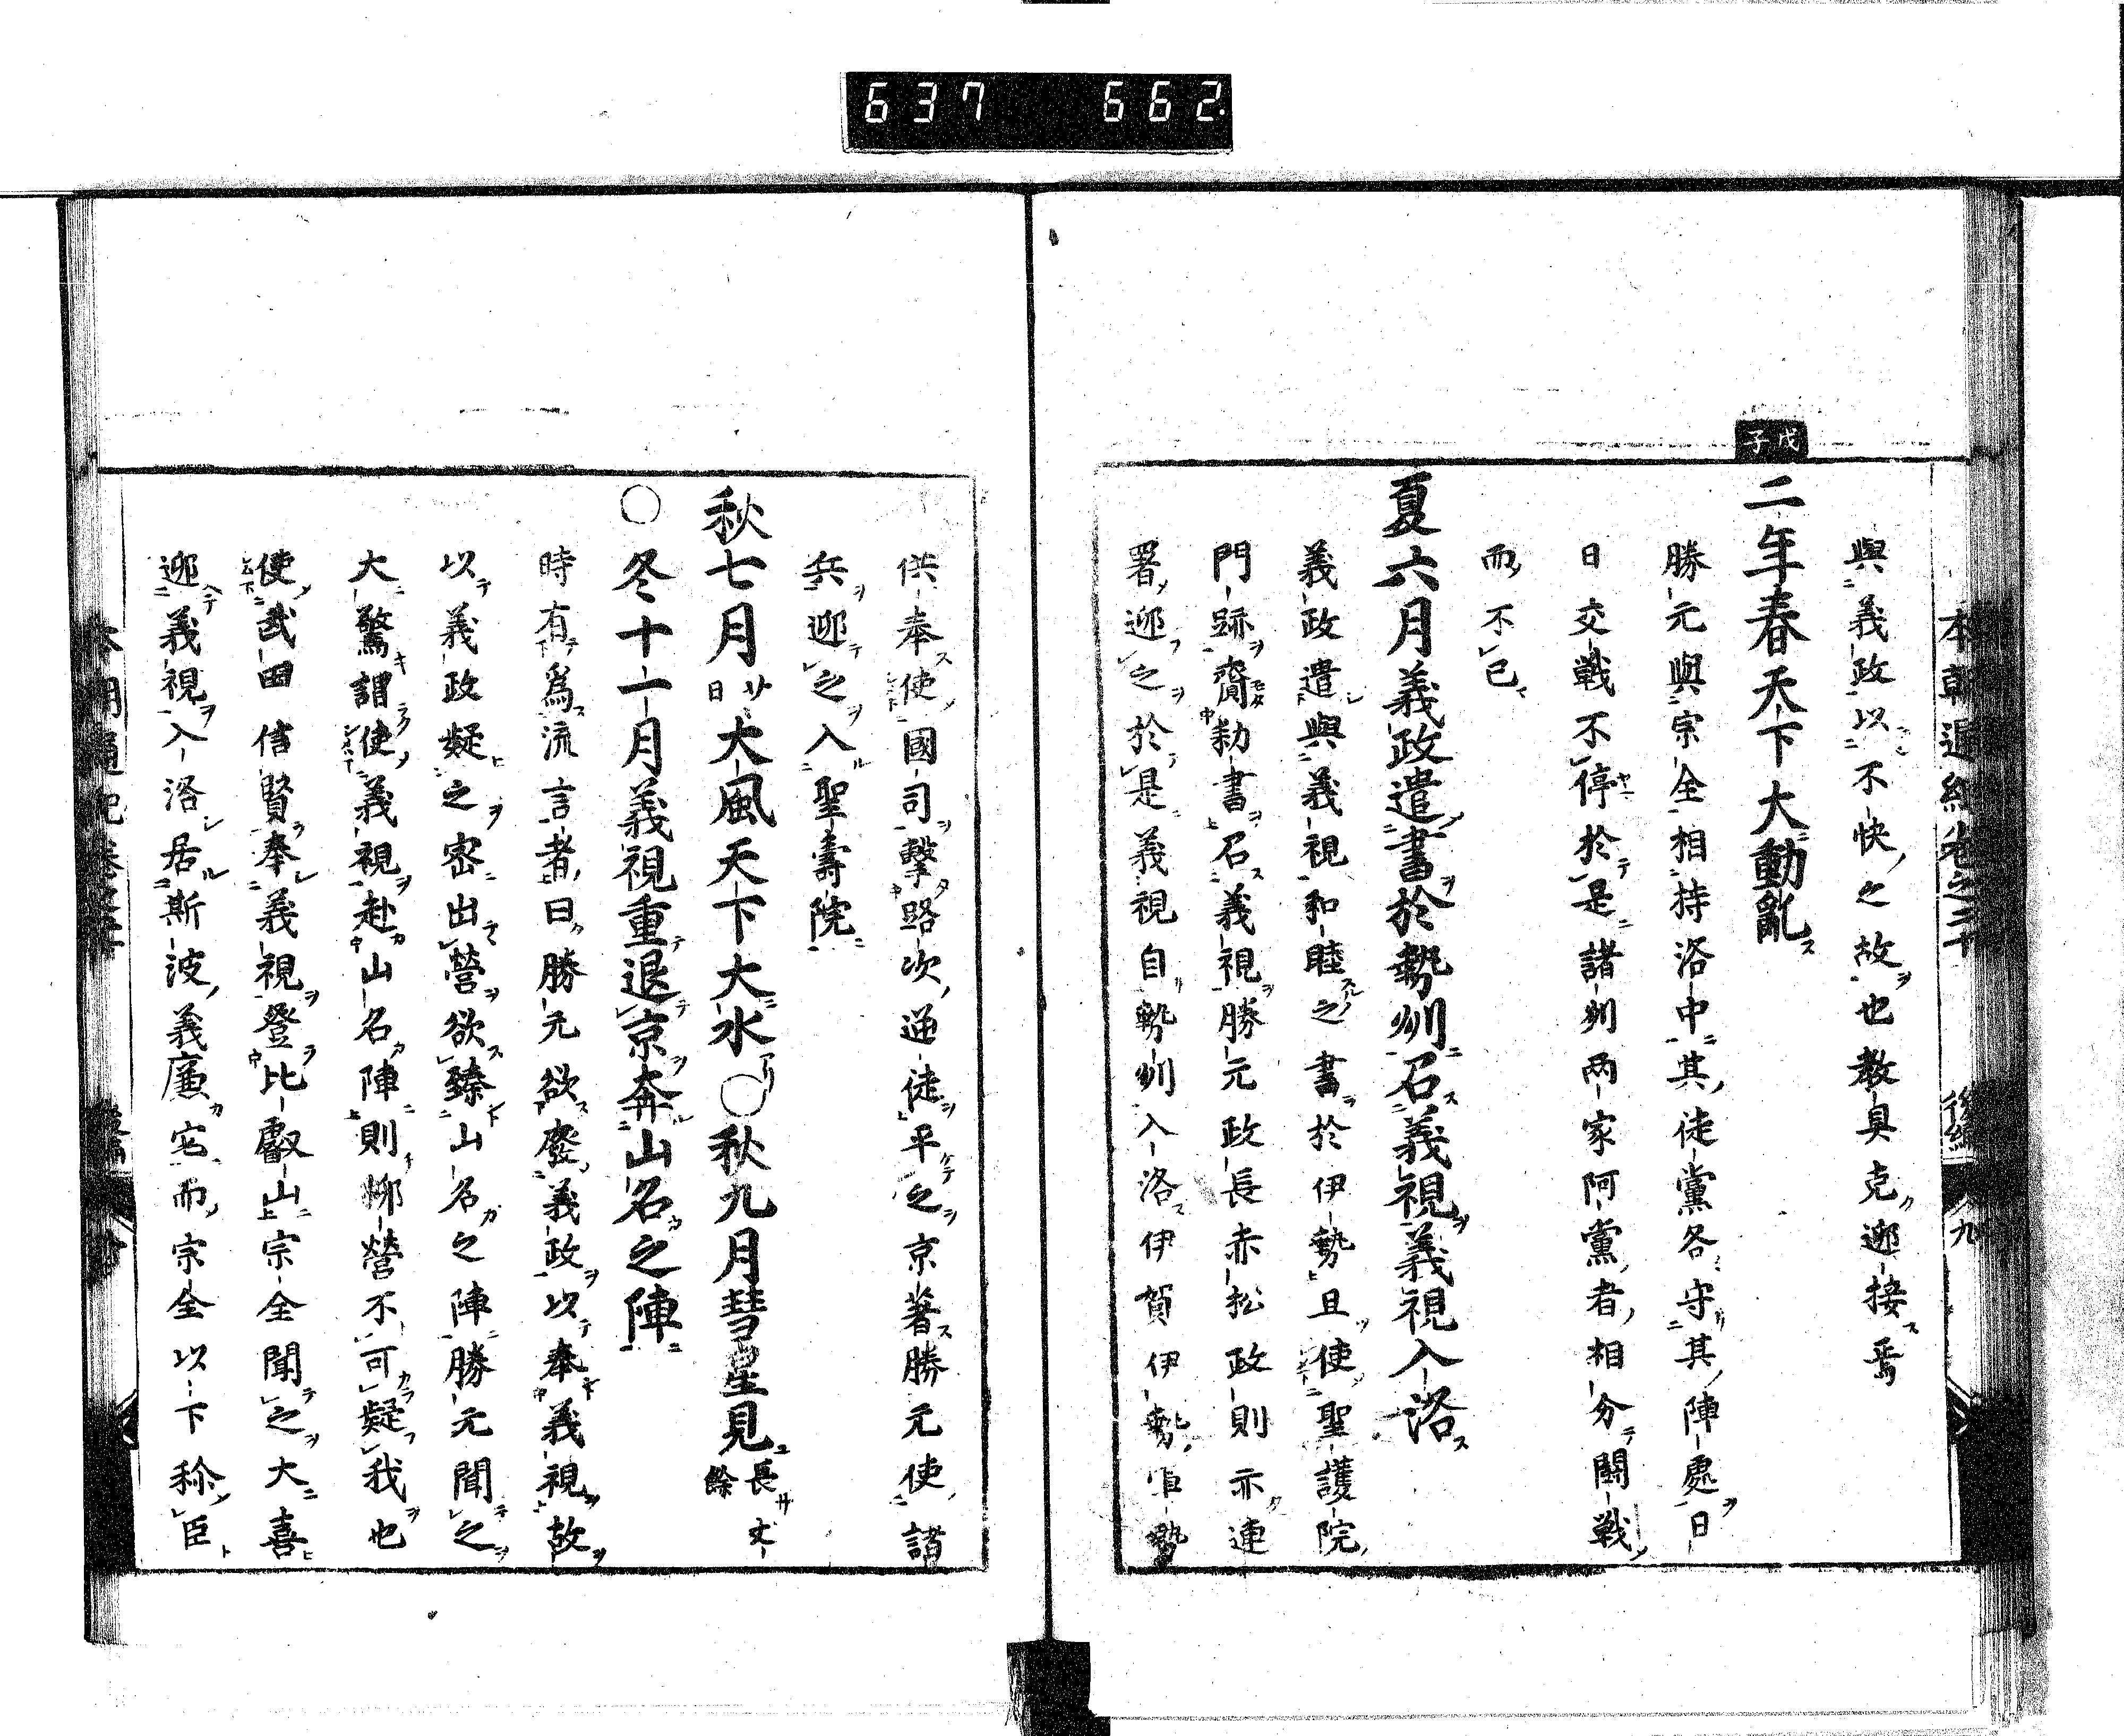 637 662
本朝通紀卷之二十 後編 九
與義政以不快之故也教具克迎接焉
戊子
二年春天下大動亂
勝元與宗全相持洛中其徒黨各守其陣處日
日交戰不停於是諸州两家阿黨者相分闘戰
而不已
夏六月義政遣書於勢州召義視義視入洛
義政遣與義視和睦之書於伊勢且使聖護院
門跡齎勅書召義視勝元政長赤松政則亦連
署迎之於是義視自勢州入洛伊賀伊勢勢
供奉使國司擊路次逆徒平之京著勝元使諸
兵迎之入聖壽院
秋七月廿日大風天下大水○秋九月彗星見長廿丈餘
○冬十一月義視重退京奔山名之陣
時有爲流言者曰勝元欲廢義政以奉義視故
以義政疑之密出營欲臻山名之陣勝元聞之
大驚謂使義視赴山名陣則柳營不可疑我也
使武田信賢奉義視登比叡山宗全聞之大喜
迎義視入洛居斯波義廉宅而宗全以下稱臣
本朝通紀卷之二十 後編